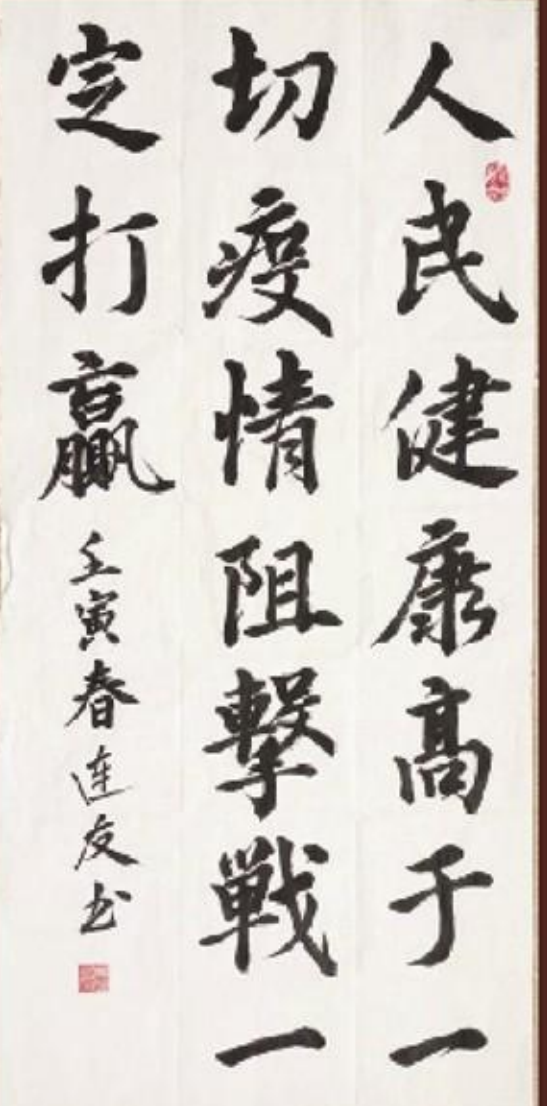 人民健康高于一
切疫情阻撃戦一
定打赢
壬寅春连友书